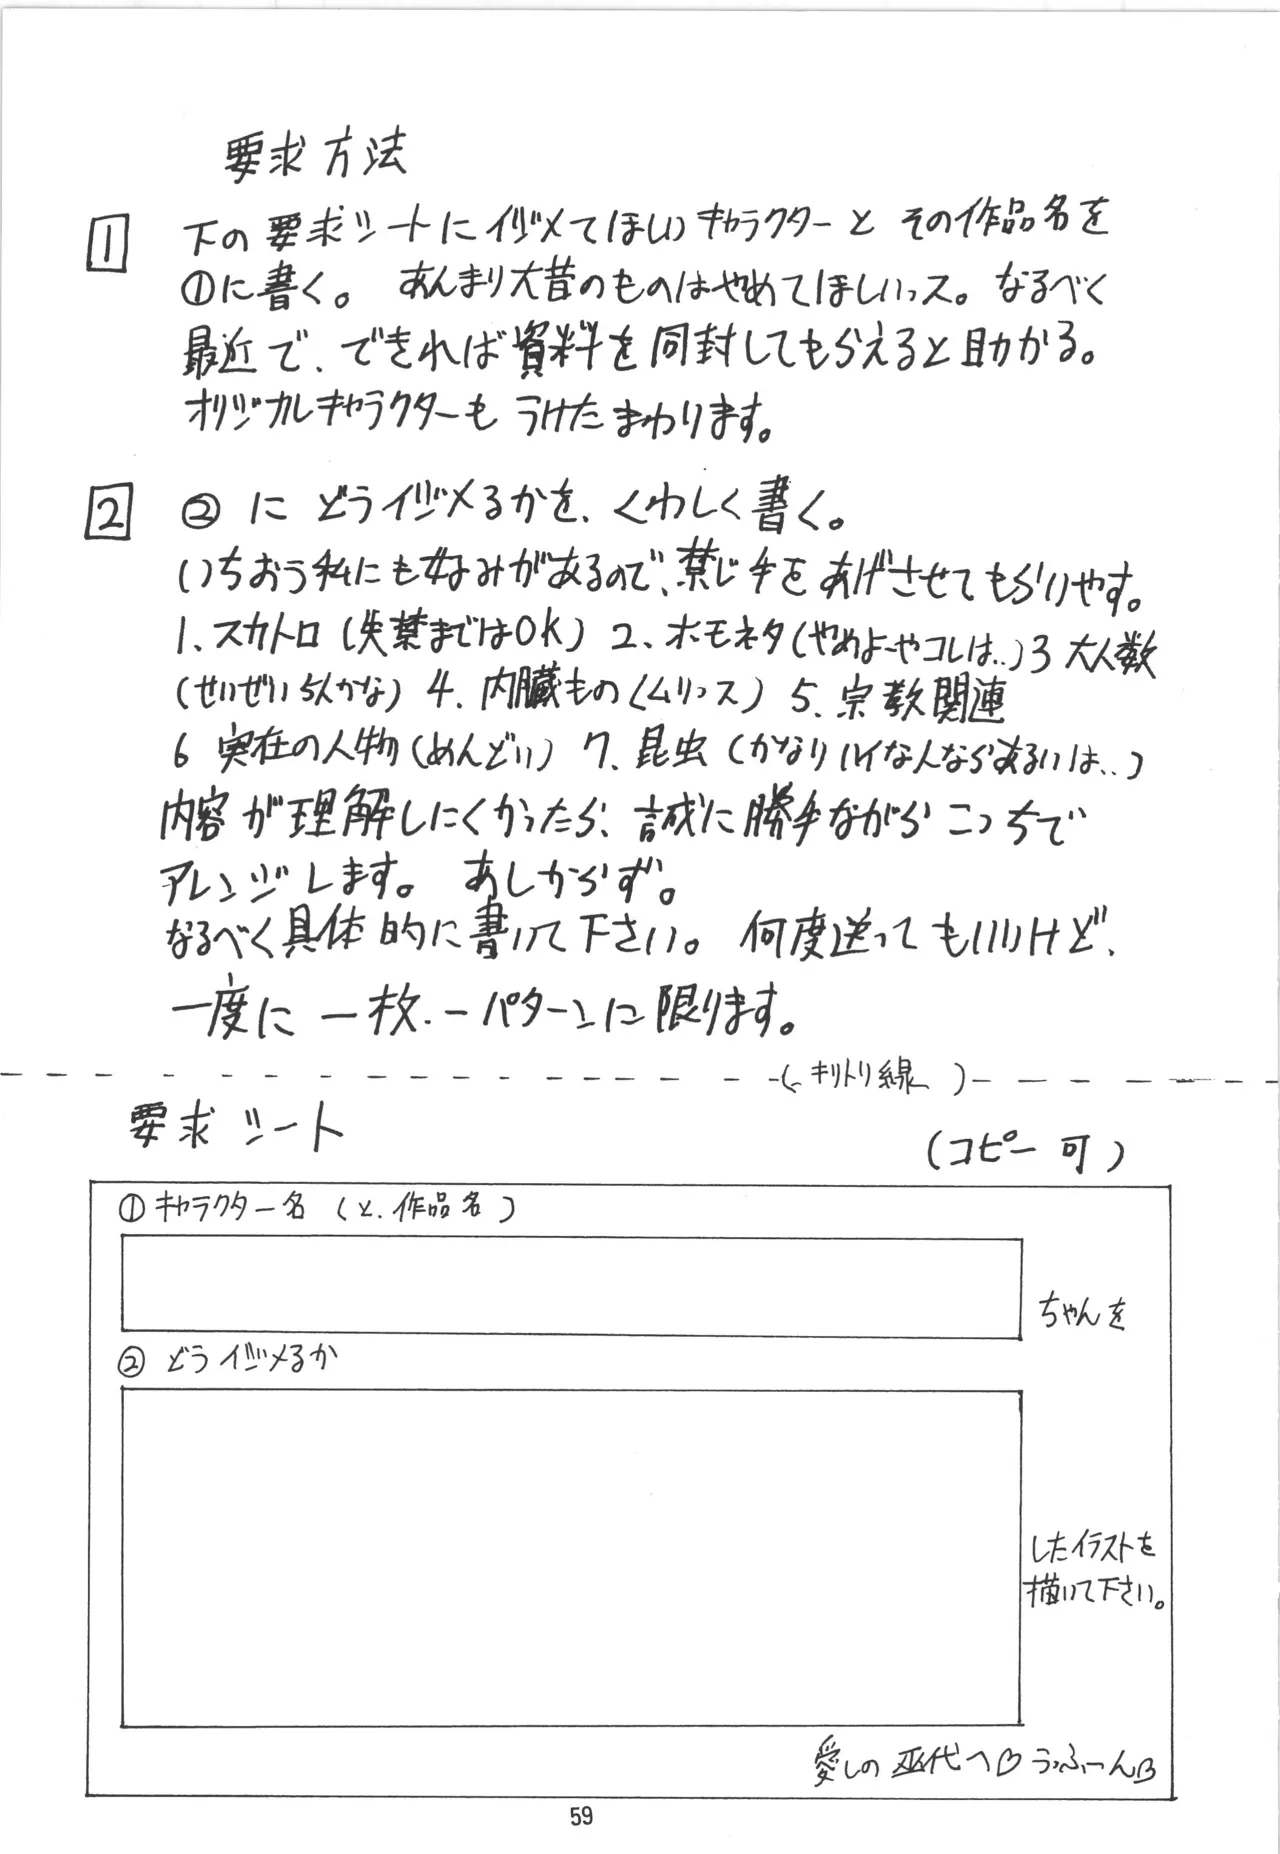 要求方法
1 下の要求シートにイジメてほしいキャラクターとその作品名を
①に書く。 あんまり大昔のものはやめてほしいっス。なるべく
最近で、できれば資料を同封してもらえると助かる。
オリジナルキャラクターもうけたまわります。
2 ②に どうイジメるかを、くわしく書く。
いちおう私にも好みがあるので、禁じ手をあげさせてもらいやす。
1、スカトロ(失禁まではOK) 2、ホモネタ(やめよーやコレは..)3 大人数
(せいぜい5人かな) 4、内臓もの(ムリっス) 5、宗教関連
6 実在の人物(めんどい) 7、昆虫(かなりハイな人ならあるいは..)
内容が理解しにくかったら、誠に勝手ながらこっちで
アレンジします。 あしからず。
なるべく具体的に書いて下さい。 何度送ってもいいけど、
一度に一枚、一パターンに限ります。
(キリトリ線)
要求シート
(コピー可)
①キャラクター名 (と、作品名)
ちゃんを
② どうイジメるか
したイラストを
描いて下さい。
愛しの巫代へ♡うっふーん♡
59